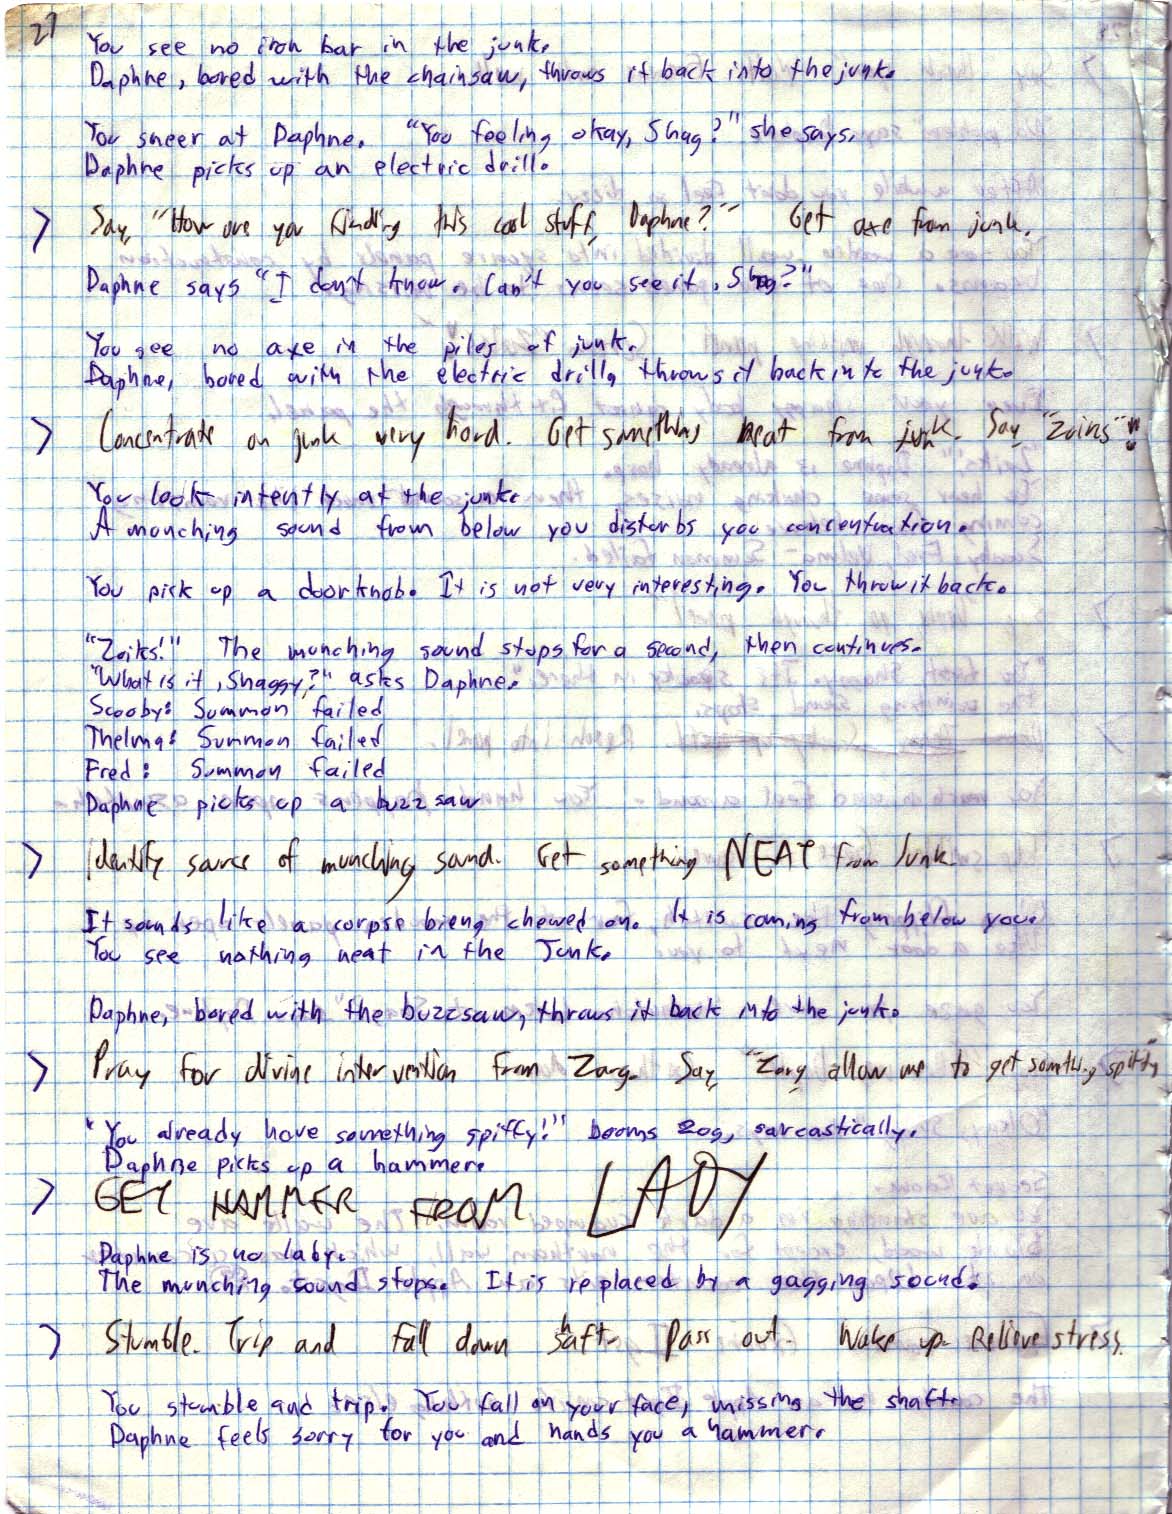 27
You see no iron bar in the junk.
Daphne, bored with the chainsaw, throws it back into the junk.
You sneer at Daphne. "You feeling okay, Shag?" she says.
Daphne picks up an electric drill.
> Say, "How are you finding this cool stuff, Daphne?" Get axe from junk.
Daphne says "I don't know. Can't you see it, Shag?"
You see no axe in the piles of junk.
Daphne, bored with the electric drill, throws it back into the junk.
> Concentrate on junk very hard. Get something neat from junk. Say "Zoiks"!
You look intently at the junk.
A munching sound from below you disturbs you concentration.
You pick up a doorknob. It is not very interesting. You throw it back.
"Zoiks!" The munching sound stops for a second, then continues.
"What is it, Shaggy?" asks Daphne.
Scooby: Summon failed
Thelma: Summon failed
Fred: Summon failed
Daphne picks up a buzz saw
> Identify source of munching sound. Get something NEAT from Junk.
It sounds like a corpse bieng chewed on. It is coming from below you.
You see nothing neat in the Junk.
Daphne, bored with the buzzsaw, throws it back into the junk.
> Pray for divine intervention from Zarg. Say "Zarg allow me to get somthing spiffy"
"You already have something spiffy!" booms Zog, sarcastically.
Daphne picks up a hammer.
> GET HAMMER FROM LADY
Daphne is no laby.
The munching sound stops. It is replaced by a gagging sound.
> Stumble. Trip and fall down shaft. Pass out. Wake up. Relieve stress.
You stumble and trip. You fall on your face, missing the shaft.
Daphne feels sorry for you and hands you a hammer.